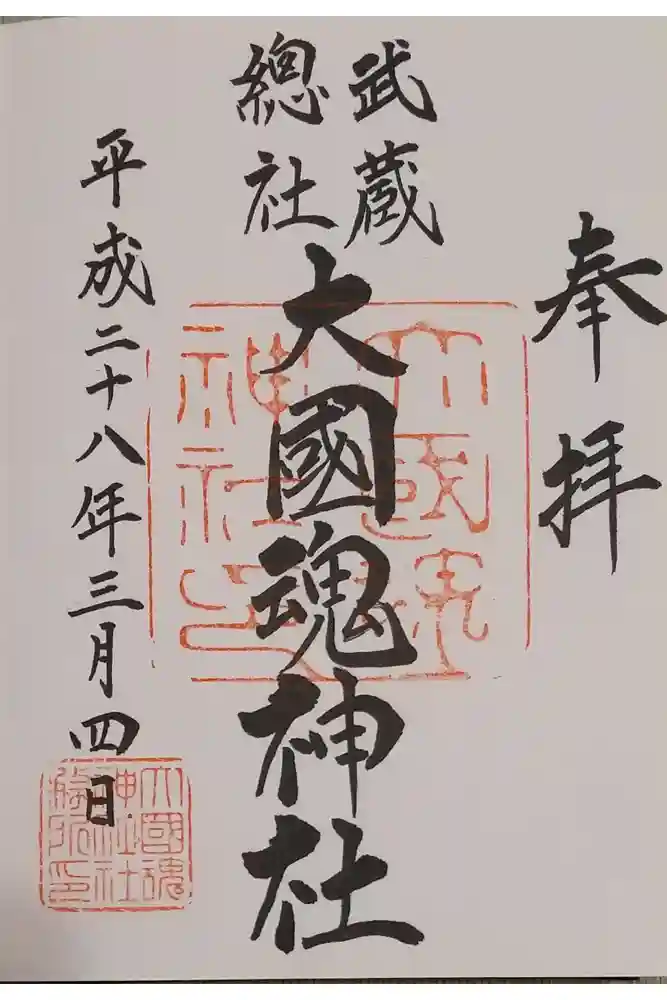 奉拝
武蔵
總社
大國魂神社
平成二十八年三月四日
大國魂
神社